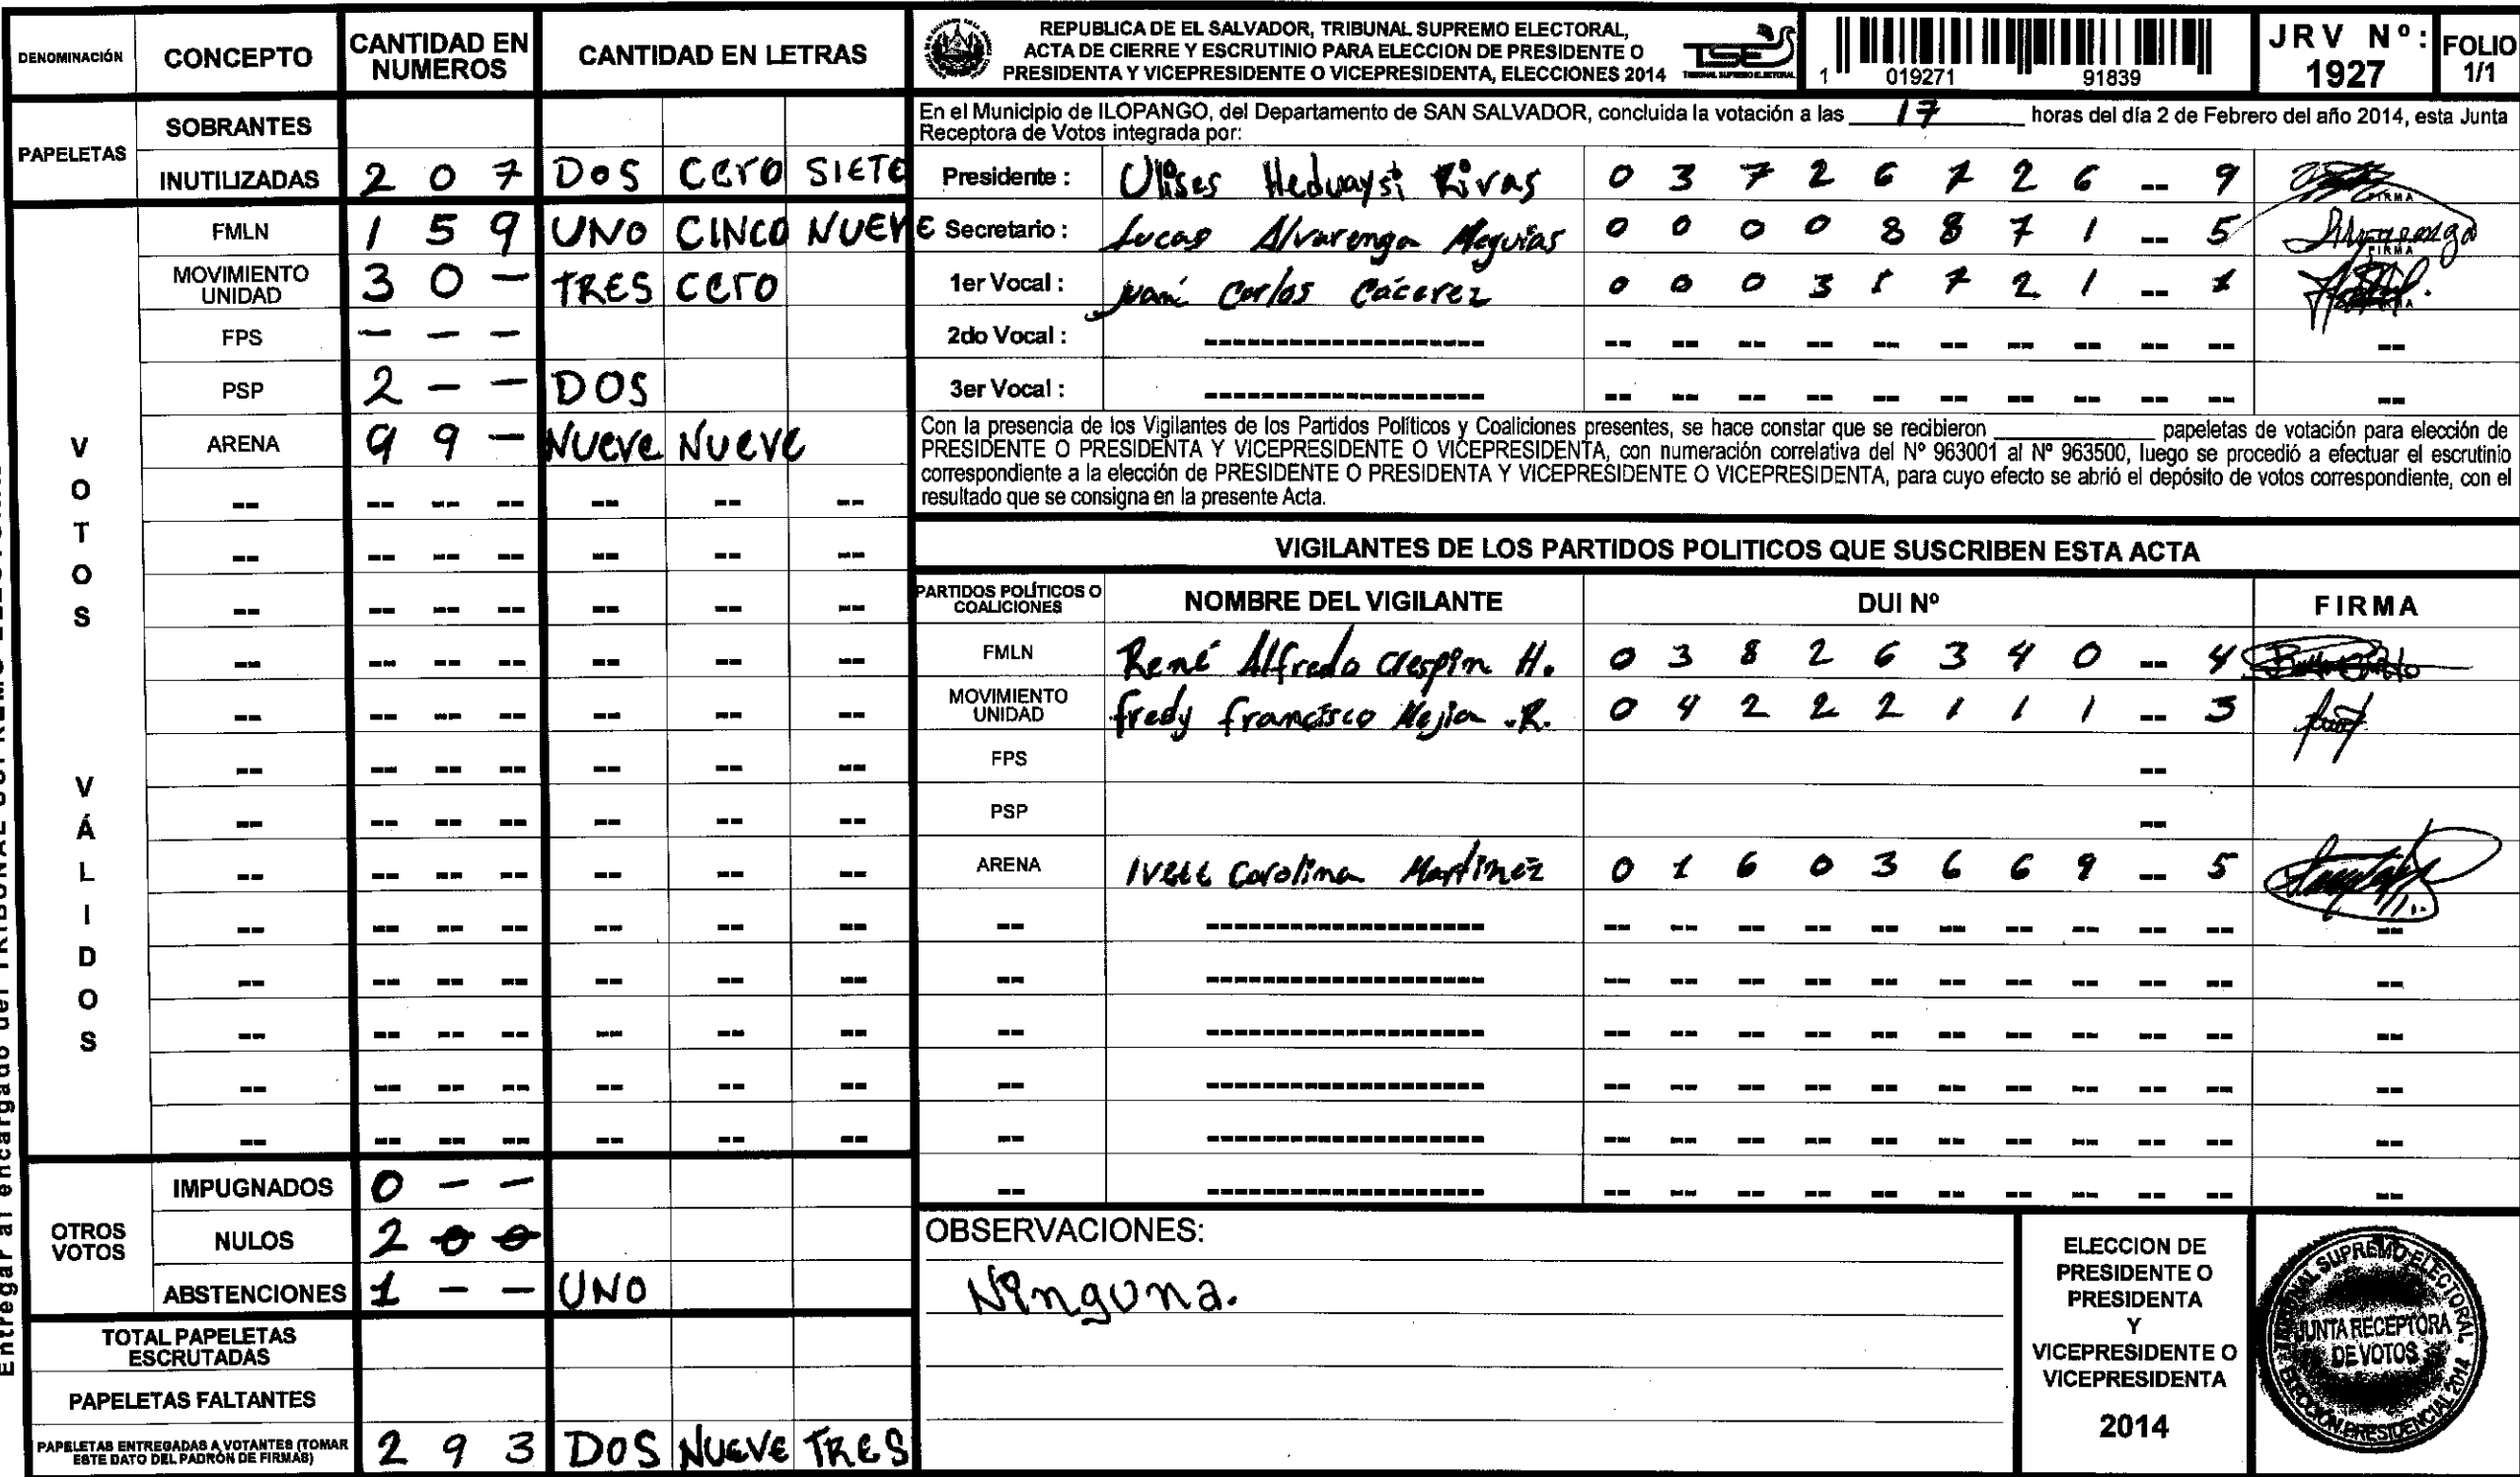 DENOMINACIÓN CONCEPTO CANTIDAD EN NUMEROS CANTIDAD EN LETRAS
PAPELETAS
SOBRANTES
INUTILIZADAS 2 0 7 DOS CERO SIETE
VOTOS VÁLIDOS
FMLN 1 5 9 UNO CINCO NUEVE
MOVIMIENTO UNIDAD 3 0 - TRES CERO
FPS - - -
PSP 2 - - DOS
ARENA 9 9 - NUEVE NUEVE
OTROS VOTOS
IMPUGNADOS 0 - -
NULOS 2 0 0
ABSTENCIONES 1 - - UNO
TOTAL PAPELETAS ESCRUTADAS
PAPELETAS FALTANTES
PAPELETAS ENTREGADAS A VOTANTES (TOMAR ESTE DATO DEL PADRÓN DE FIRMAS) 2 9 3 DOS NUEVE TRES
REPUBLICA DE EL SALVADOR, TRIBUNAL SUPREMO ELECTORAL,
ACTA DE CIERRE Y ESCRUTINIO PARA ELECCION DE PRESIDENTE O
PRESIDENTA Y VICEPRESIDENTE O VICEPRESIDENTA, ELECCIONES 2014
TSE
TRIBUNAL SUPREMO ELECTORAL
1 019271 91839
JRV Nº: 1927
FOLIO 1/1
En el Municipio de ILOPANGO, del Departamento de SAN SALVADOR, concluida la votación a las 17 horas del día 2 de Febrero del año 2014, esta Junta
Receptora de Votos integrada por:
Presidente : Ulises Rivas 0 3 7 2 6 7 2 6 -- 9 FIRMA
Secretario : Lucas Alvarenga 0 0 0 0 8 8 7 1 -- 5 FIRMA
1er Vocal : Carlos Cácerez 0 0 0 3 1 7 2 1 -- 1 FIRMA
2do Vocal :
3er Vocal :
Con la presencia de los Vigilantes de los Partidos Políticos y Coaliciones presentes, se hace constar que se recibieron ____ papeletas de votación para elección de
PRESIDENTE O PRESIDENTA Y VICEPRESIDENTE O VICEPRESIDENTA, con numeración correlativa del Nº 963001 al Nº 963500, luego se procedió a efectuar el escrutinio
correspondiente a la elección de PRESIDENTE O PRESIDENTA Y VICEPRESIDENTE O VICEPRESIDENTA, para cuyo efecto se abrió el depósito de votos correspondiente, con el
resultado que se consigna en la presente Acta.
VIGILANTES DE LOS PARTIDOS POLITICOS QUE SUSCRIBEN ESTA ACTA
PARTIDOS POLÍTICOS O COALICIONES NOMBRE DEL VIGILANTE DUI Nº FIRMA
FMLN René Alfredo Crespin H. 0 3 8 2 6 3 4 0 -- 4
MOVIMIENTO UNIDAD fredy francisco Mejia .R. 0 4 2 2 2 1 1 1 -- 3
FPS --
PSP --
ARENA Ivett Carolina Martinez 0 1 6 0 3 6 6 9 -- 5
OBSERVACIONES:
Ninguna.
ELECCION DE
PRESIDENTE O
PRESIDENTA
Y
VICEPRESIDENTE O
VICEPRESIDENTA
2014
TRIBUNAL SUPREMO ELECTORAL
JUNTA RECEPTORA
DE VOTOS
ELECCIÓN PRESIDENCIAL 2014
Entregar al encargado del TRIBUNAL SUPREMO